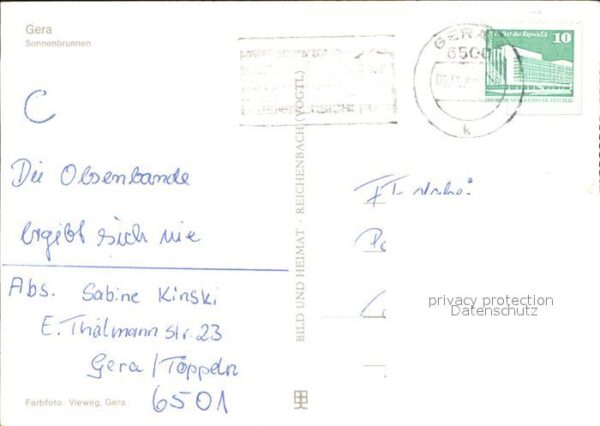 Gera
Sonnenbrunnen
C
Die Olsenbande
ergibt sich nie
Abs. Sabine Kinski
E. Thälmann str. 23
Gera / Töppeln
6501
Farbfoto: Vieweg, Gera
BILD UND HEIMAT · REICHENBACH (VOGTL)
GERA
6500
k
Palast der Republik
10
privacy protection
Datenschutz